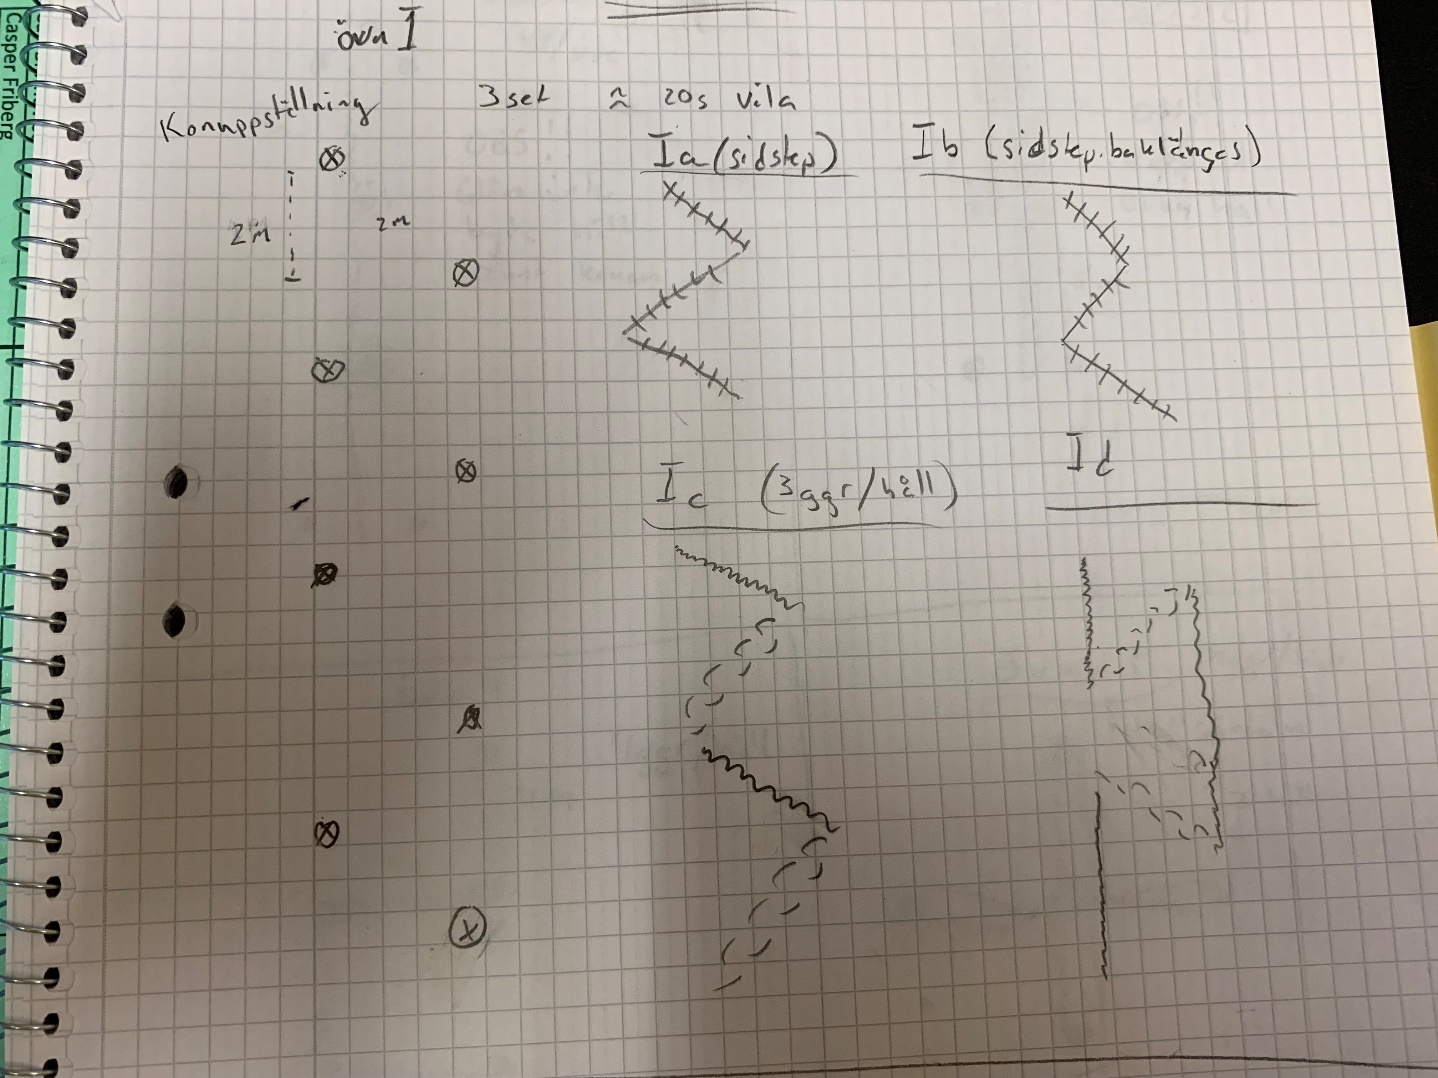 Casper Friberg
övn I
Konuppställning
3 set ≈ 20s vila
2m
2m
Ia (sidstep)
Ib (sidstep. baklänges)
Ic (3ggr/håll)
Id